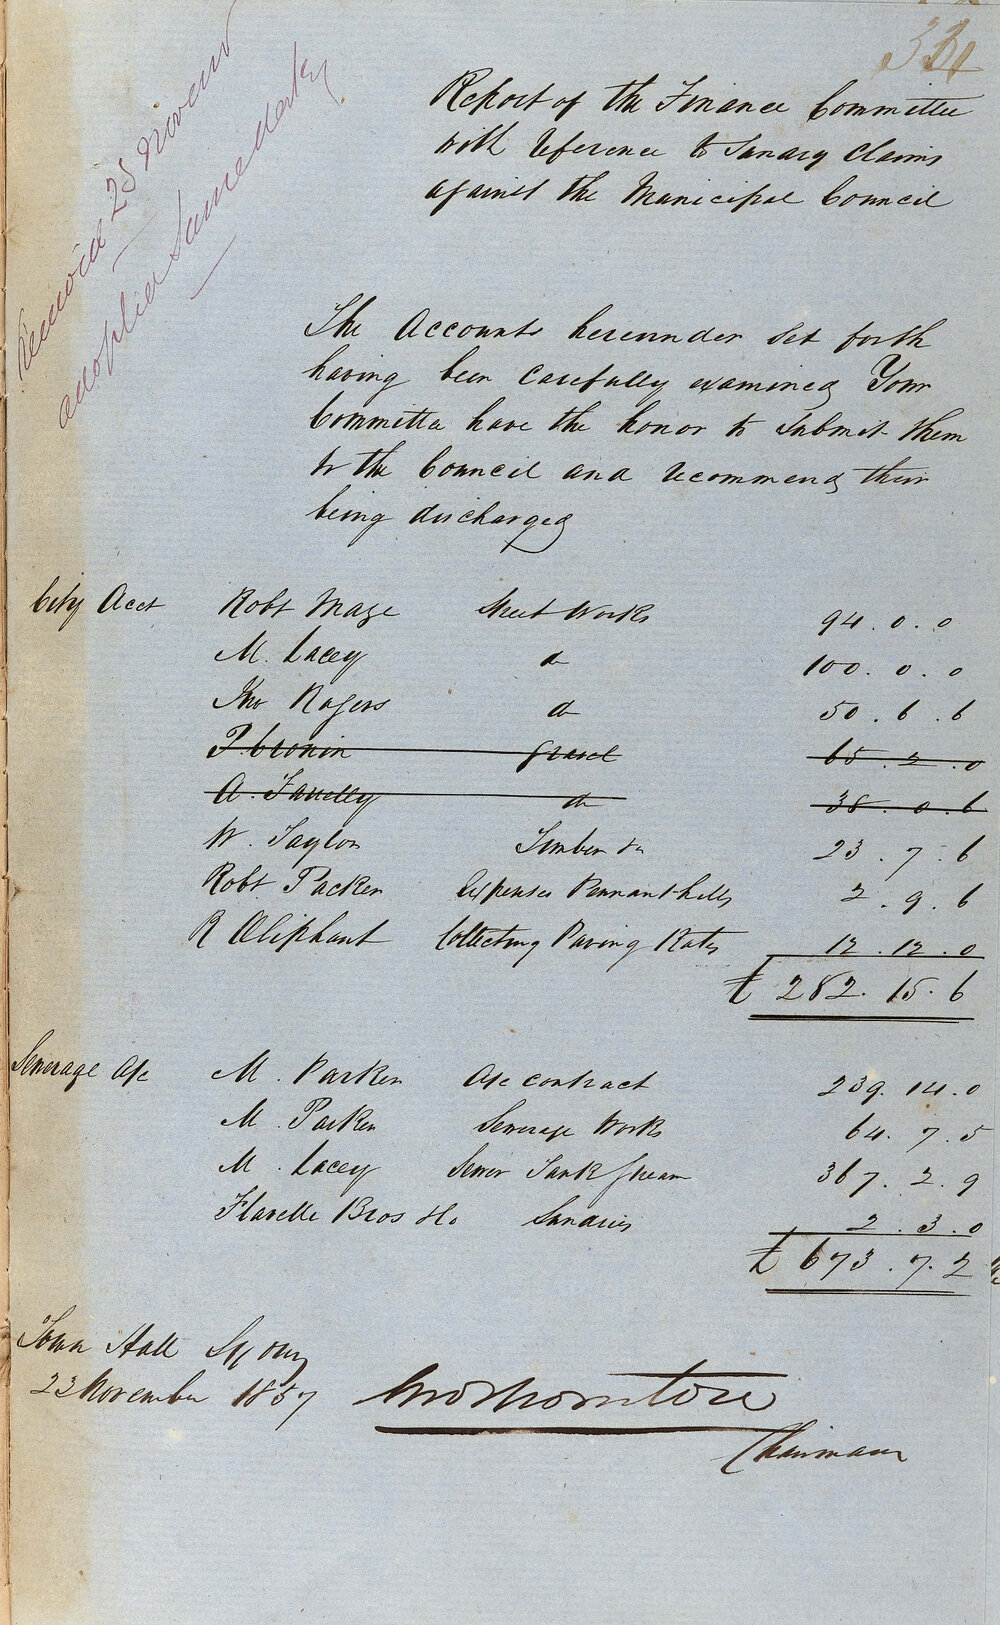 331
Received 25 Novemr
adopted Same day
Report of the Finance Committee
with reference to Sundry Claims
against the Municipal Council
The Accounts hereunder set forth
having been carefully examined Your
Committee have the honor to Submit them
to the Council and recommend their
being discharged
City Acct Robt Maze Street Works 94.0.0
M. Lacey do 100.0.0
Jno Rogers do 50.6.6
P. Cronin gravel 65.2.0
A. Fanelly do 38.0.6
W. Taylor Timber &c 23.7.6
Robt Packer Expenses Pennant hills 2.9.6
R Oliphant Collecting Paving Rates 12.12.0
£ 282.15.6
Sewerage A/c M. Parker A/c contract 239.14.0
M. Parker Sewerage Works 64.7.5
M. Lacey Sewer Tank Stream 367.2.9
Flavelle Bros & Co Sundries 2.3.0
£ 673.7.2
Town Hall Sydney
23 November 1857 Geo Thornton
Chairman